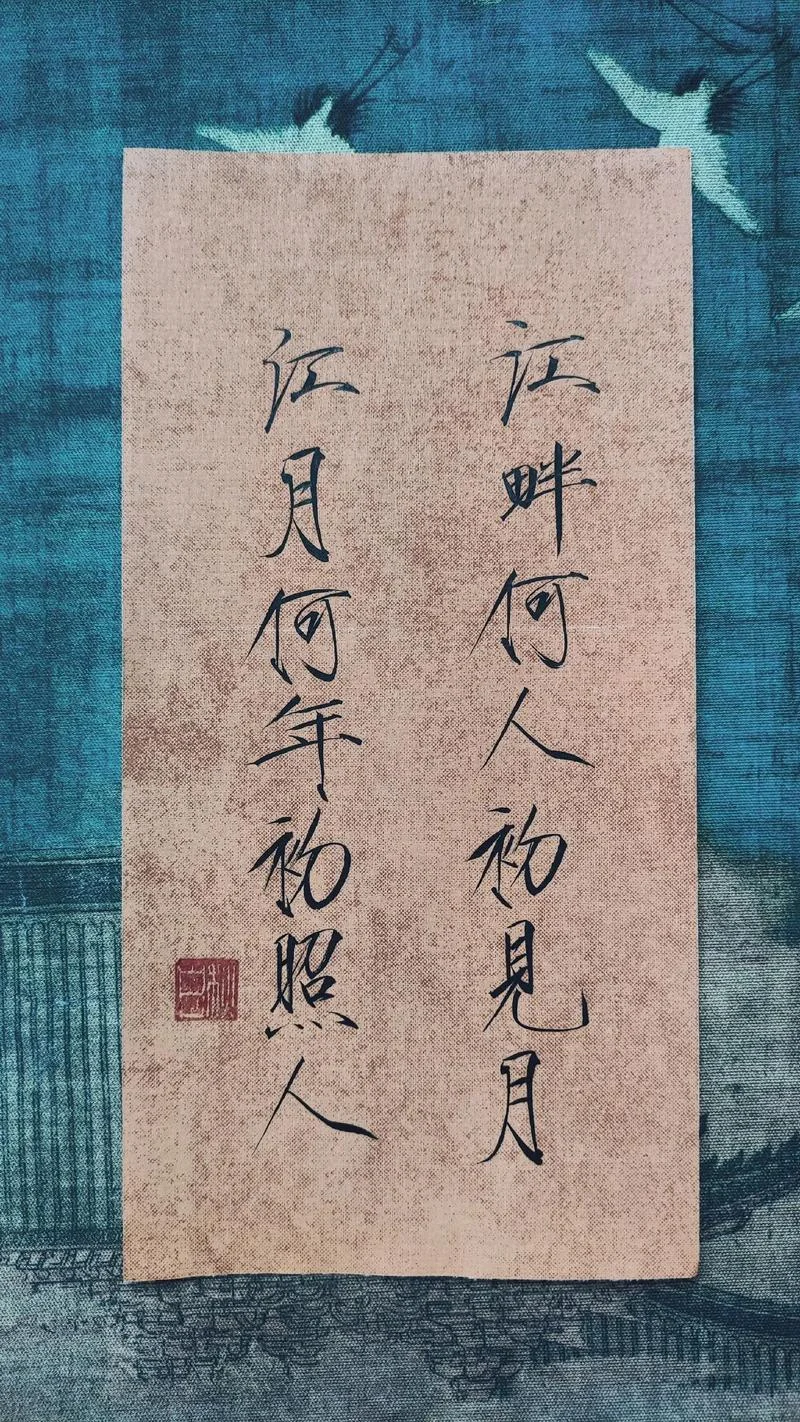 江畔何人初見月
江月何年初照人